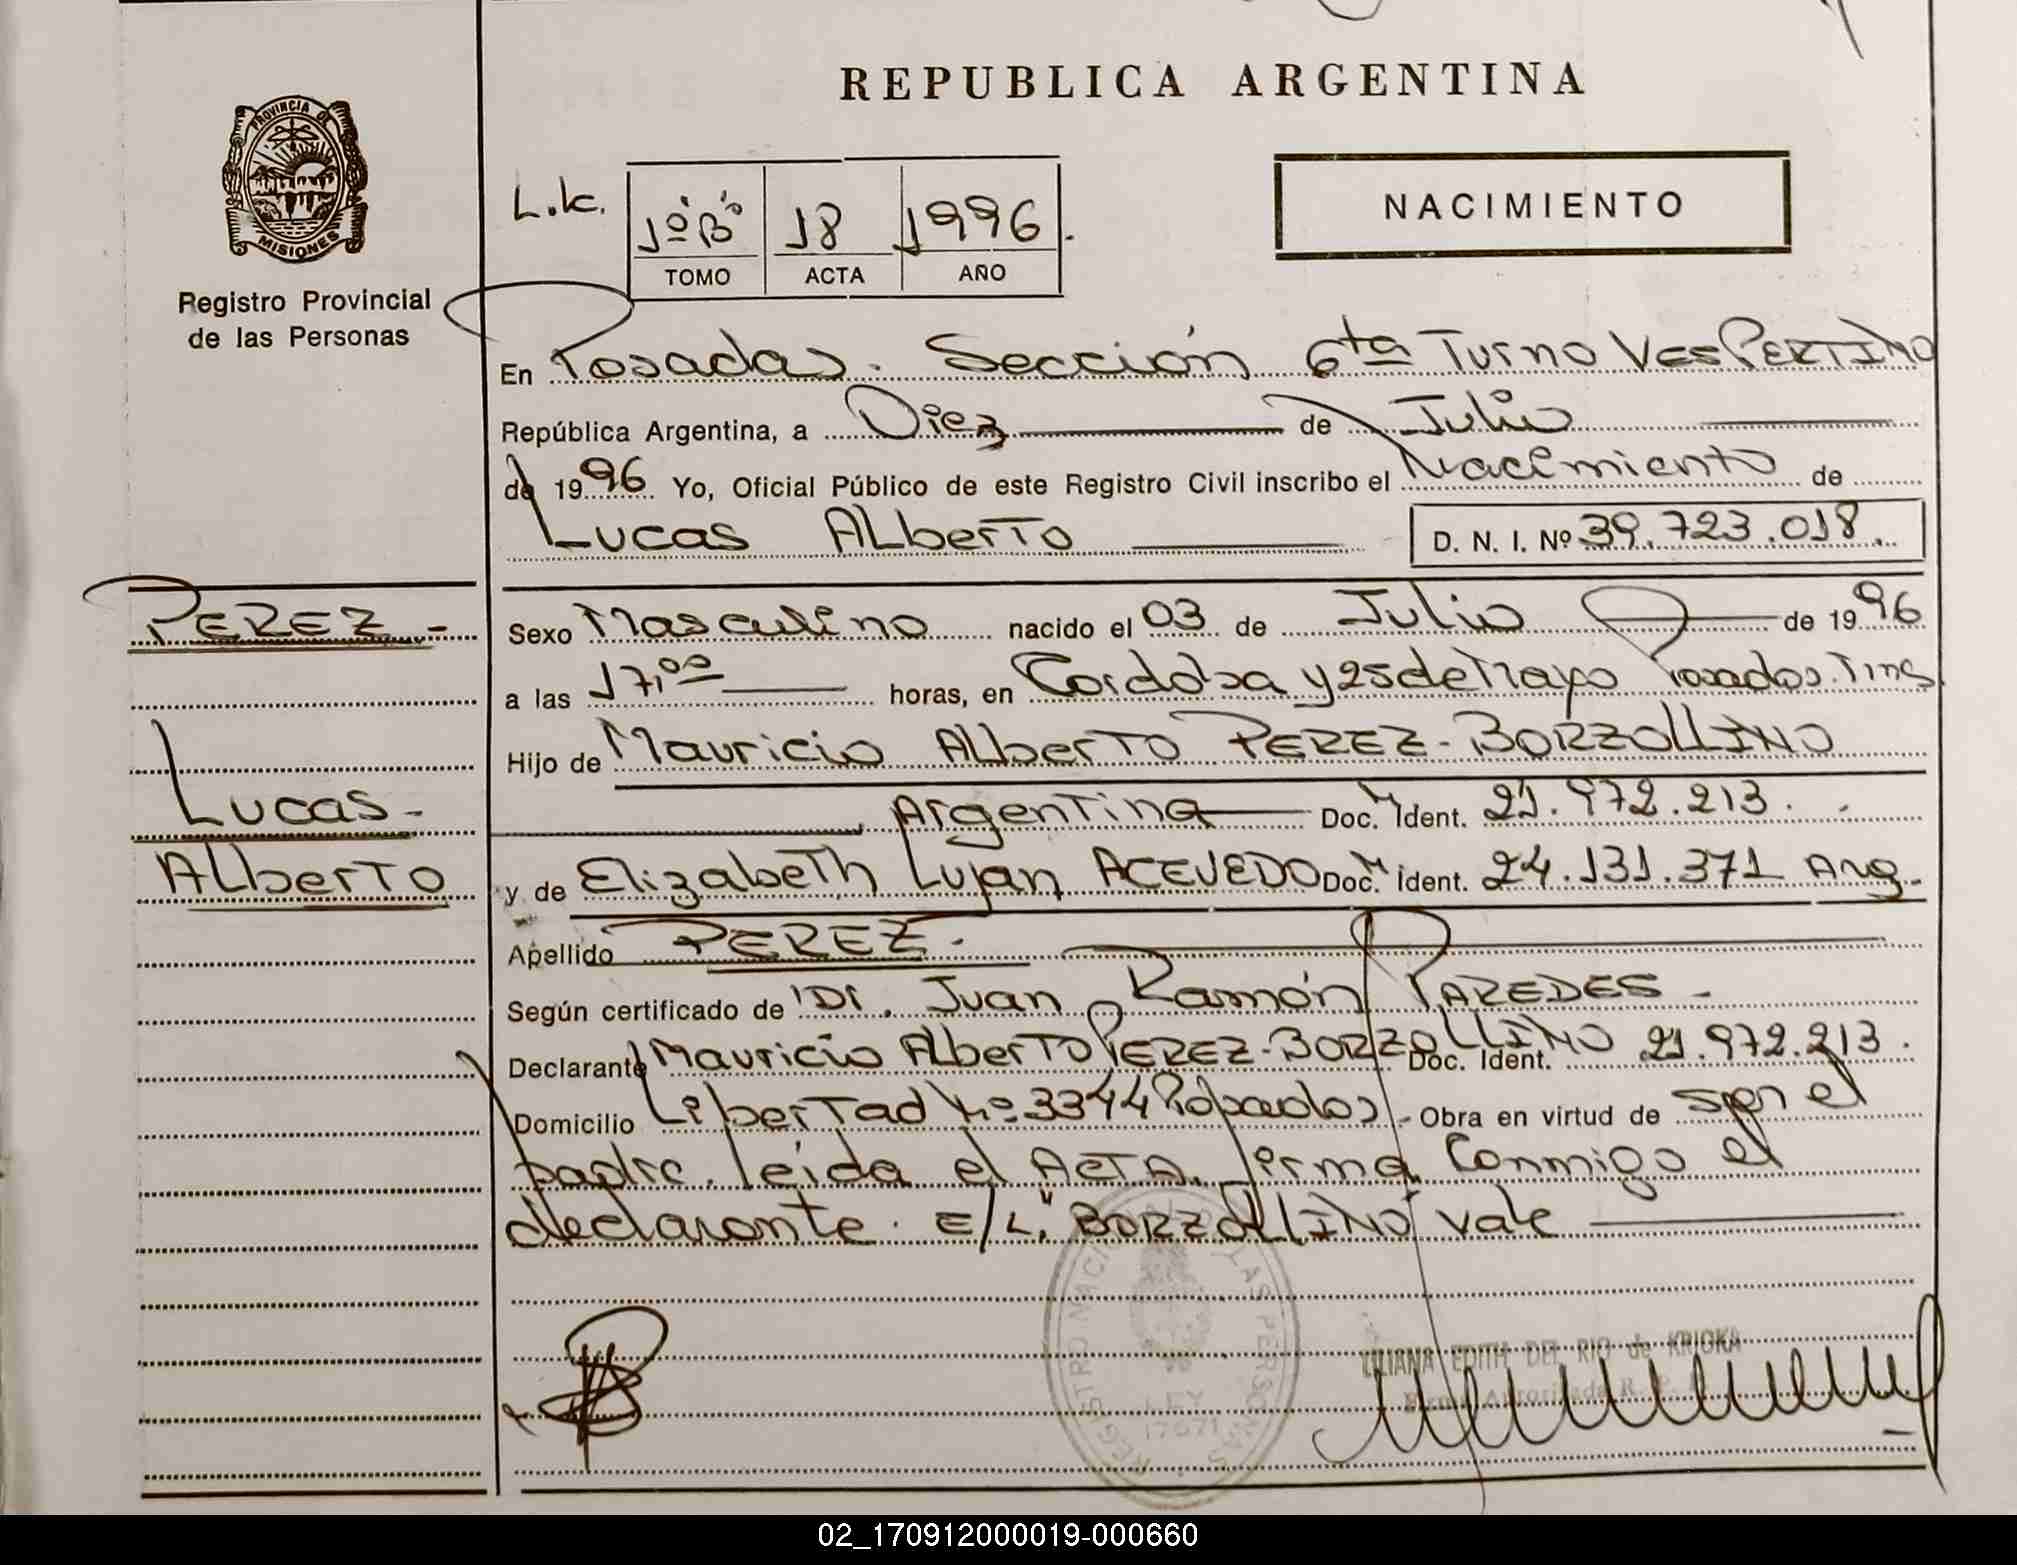 REPUBLICA ARGENTINA
PROVINCIA DE MISIONES
Registro Provincial
de las Personas
L.k.
1º "B" 18 1996.
TOMO ACTA AÑO
NACIMIENTO
En Posadas. Sección 6ta Turno VESPERTINO
República Argentina, a Diez de Julio
de 1996 Yo, Oficial Público de este Registro Civil inscribo el Nacimiento de
Lucas Alberto D. N. I. Nº 39.723.018.
PEREZ -
Lucas -
Alberto
Sexo Masculino nacido el 03 de Julio de 1996
a las 17,00 horas, en Cordoba y 25 de Mayo Posadas.
Hijo de Mauricio Alberto PEREZ-BORZOLLINO
Argentina Doc. Ident. 21.972.213.
y de Elizabeth Lujan ACEVEDO Doc. Ident. 24.131.371 Arg.
Apellido PEREZ.-
Según certificado de Dr. Juan Ramón PAREDES -
Declarante Mauricio Alberto PEREZ-BORZOLLINO Doc. Ident. 21.972.213.
Domicilio Libertad Nº 3344 Posadas.- Obra en virtud de ser el
padre. leida el ACTA. firma Conmigo el
declarante. E/L." BORZOLLINO vale
REGISTRO NACIONAL DE LAS PERSONAS
LEY
17671
LILIANA EDITH DEL RIO de KRIGKA
Firma Autorizada
02_170912000019-000660